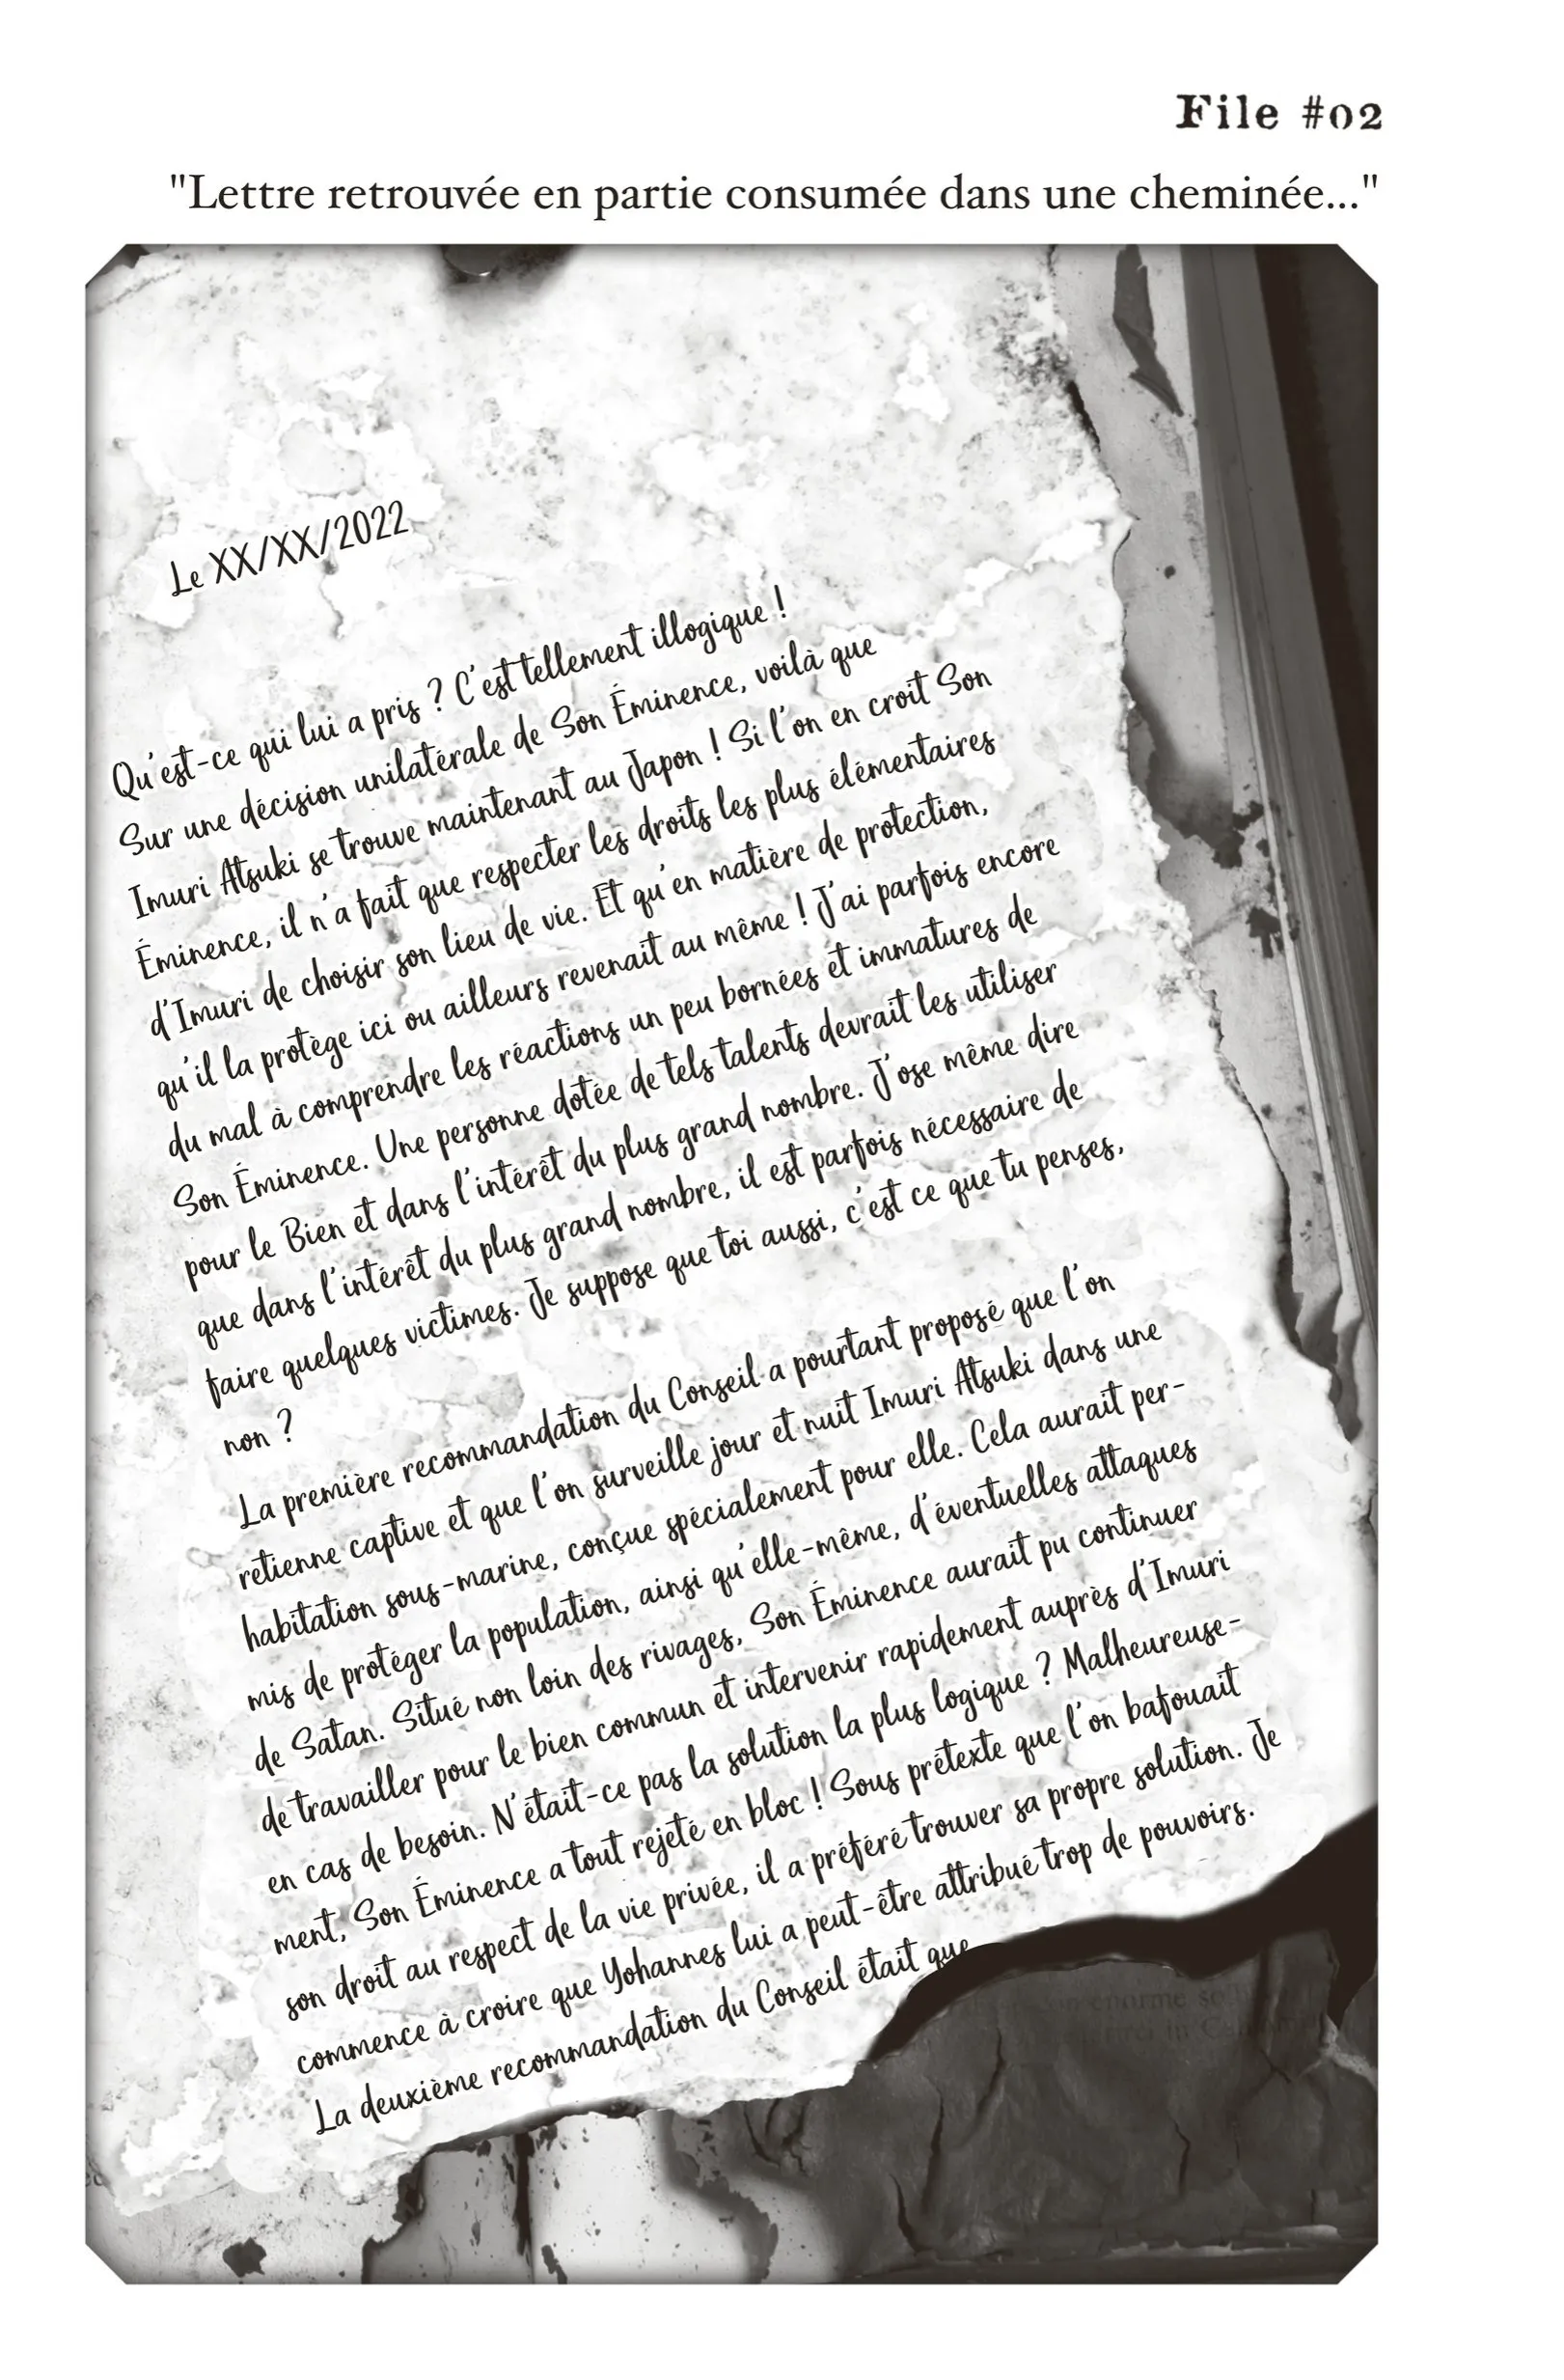 File #02
"Lettre retrouvée en partie consumée dans une cheminée..."
Le XX/XX/2022
Qu'est-ce qui lui a pris ? C'est tellement illogique !
Sur une décision unilatérale de Son Éminence, voilà que
Imuri Atsuki se trouve maintenant au Japon ! Si l'on en croit Son
Éminence, il n'a fait que respecter les droits les plus élémentaires
d'Imuri de choisir son lieu de vie. Et qu'en matière de protection,
qu'il la protège ici ou ailleurs revenait au même ! J'ai parfois encore
du mal à comprendre les réactions un peu bornées et immatures de
Son Éminence. Une personne dotée de tels talents devrait les utiliser
pour le Bien et dans l'intérêt du plus grand nombre. J'ose même dire
que dans l'intérêt du plus grand nombre, il est parfois nécessaire de
faire quelques victimes. Je suppose que toi aussi, c'est ce que tu penses,
non ?
La première recommandation du Conseil a pourtant proposé que l'on
retienne captive et que l'on surveille jour et nuit Imuri Atsuki dans une
habitation sous-marine, conçue spécialement pour elle. Cela aurait per-
mis de protéger la population, ainsi qu'elle-même, d'éventuelles attaques
de Satan. Situé non loin des rivages, Son Éminence aurait pu continuer
de travailler pour le bien commun et intervenir rapidement auprès d'Imuri
en cas de besoin. N'était-ce pas la solution la plus logique ? Malheureuse-
ment, Son Éminence a tout rejeté en bloc ! Sous prétexte que l'on bafouait
son droit au respect de la vie privée, il a préféré trouver sa propre solution. Je
commence à croire que Yohannes lui a peut-être attribué trop de pouvoirs.
La deuxième recommandation du Conseil était que